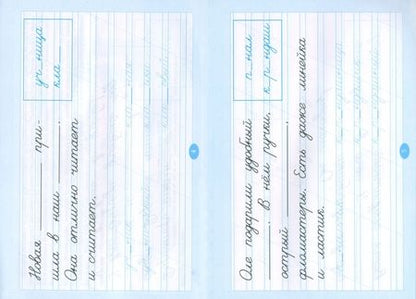 уч_ница
кла_
Новая ___ при-
шла в наш ___.
Она отлично читает
и считает.
4
п_нал
к_р_ндаш
Оле подарили удобный
___. В нём ручки,
острый ___,
фломастеры. Есть даже линейка
и ластик.
5